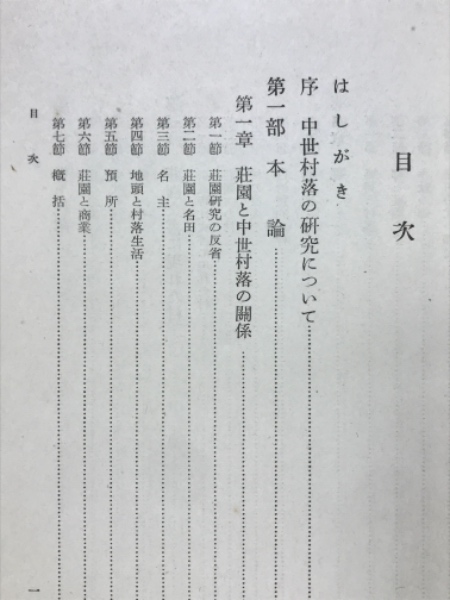 目次
はしがき
序 中世村落の研究について
第一部 本論
第一章 莊園と中世村落の關係
第一節 莊園研究の反省
第二節 莊園と名田
第三節 名主
第四節 地頭と村落生活
第五節 預所
第六節 莊園と商業
第七節 概括
目次 一